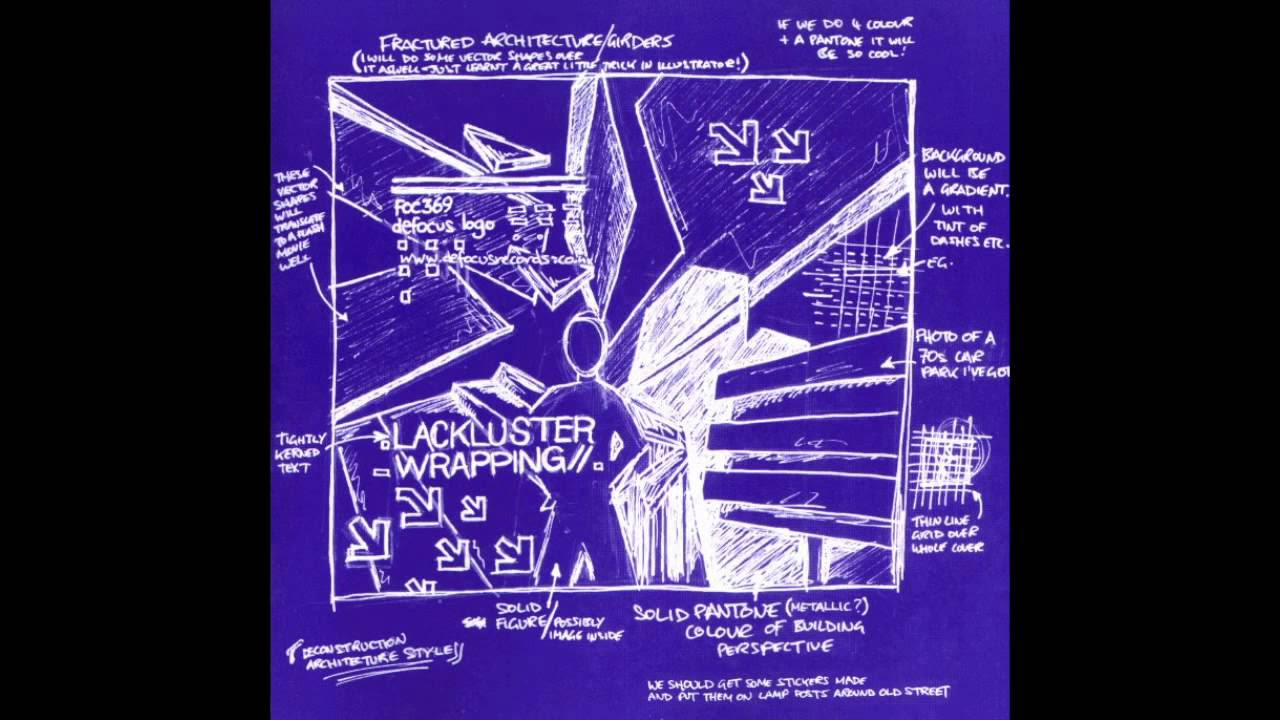 IF WE DO 4 COLOUR
+ A PANTONE IT WILL
BE SO COOL!
FRACTURED ARCHITECTURE/GIRDERS
(I WILL DO SOME VECTOR SHAPES OVER
IT ASWELL - JUST LEARNT A GREAT LITTLE TRICK IN ILLUSTRATOR!)
THESE
VECTOR
SHAPES
WILL
TRANSLATE
TO A FLASH
MOVIE
WELL
FOC369
defocus logo
www.defocusrecords.com
BACKGROUND
WILL BE
A GRADIENT.
WITH
TINT OF
DASHES ETC.
EG.
PHOTO OF A
70s CAR
PARK I'VE GO
TIGHTLY
KERNED
TEXT
LACKLUSTER
WRAPPING//.
THIN LINE
GRID OVER
WHOLE COVER
SOLID
FIGURE/POSSIBLY
IMAGE INSIDE
SOLID PANTONE (METALLIC?)
COLOUR OF BUILDING
PERSPECTIVE
"DECONSTRUCTION
ARCHITECTURE STYLE"
WE SHOULD GET SOME STICKERS MADE
AND PUT THEM ON LAMP POSTS AROUND OLD STREET